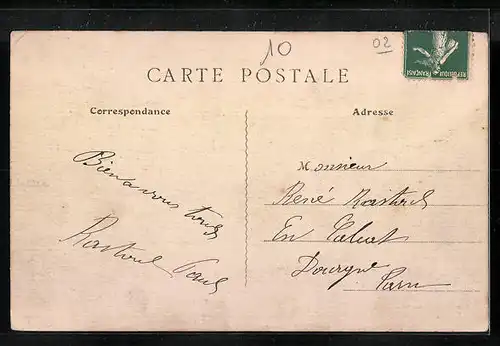 10
02
REPUBLIQUE FRANÇAISE
CARTE POSTALE
Correspondance
Adresse
Bien a vous tous
Rastoul Paul
Monsieur
René Rastoul
En Calcat
Dourgne
Tarn